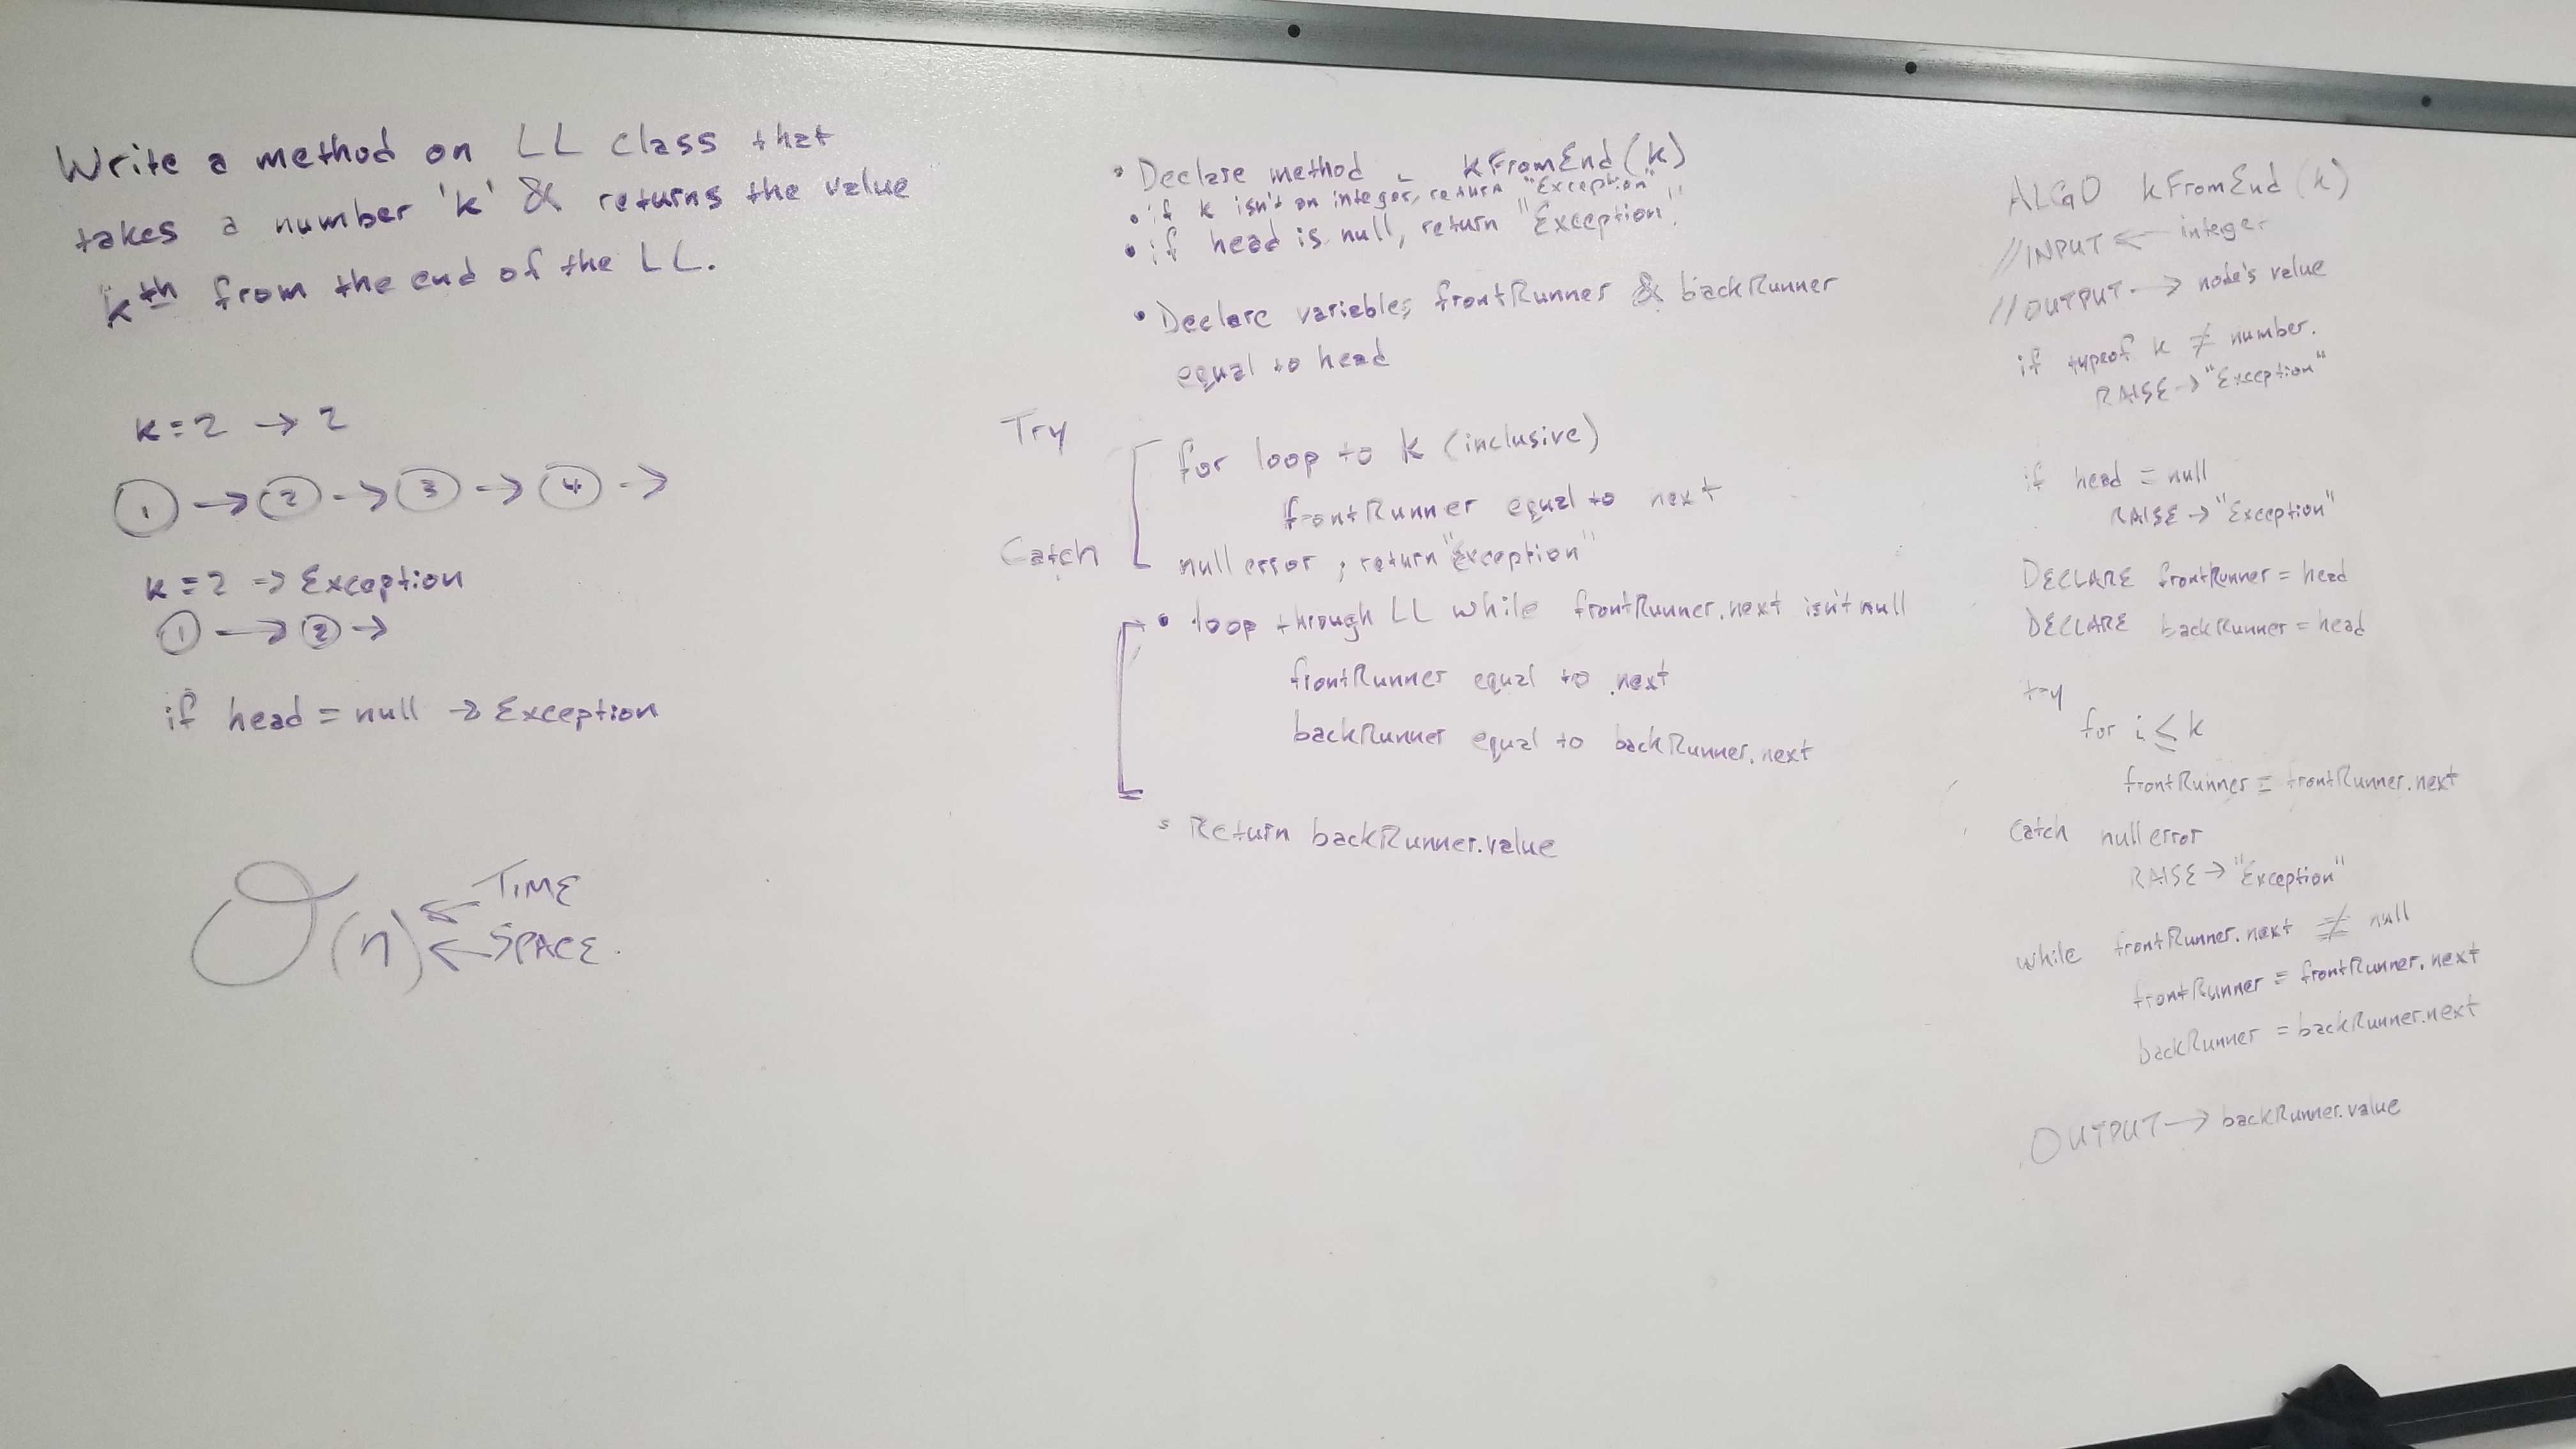 Write a method on LL class that
takes a number 'k' & returns the value
kth from the end of the LL.
k = 2 → 2
1 → 2 → 3 → 4 →
k = 2 → Exception
1 → 2 →
if head = null → Exception
O(n) ← TIME
← SPACE.
• Declare method - kFromEnd(k)
• if k isn't an integer, return "Exception"
• if head is null, return "Exception".
• Declare variables frontRunner & backRunner
equal to head
Try
for loop to k (inclusive)
frontRunner equal to next
Catch
null error, return "Exception"
• loop through LL while frontRunner.next isn't null
frontRunner equal to .next
backRunner equal to backRunner.next
• Return backRunner.value
ALGO kFromEnd(k)
//INPUT ← integer
//OUTPUT → node's value
if typeof k ≠ number.
RAISE → "Exception"
if head = null
RAISE → "Exception"
DECLARE frontRunner = head
DECLARE backRunner = head
try
for i ≤ k
frontRunner = frontRunner.next
Catch null error
RAISE → "Exception"
while frontRunner.next ≠ null
frontRunner = frontRunner.next
backRunner = backRunner.next
OUTPUT → backRunner.value